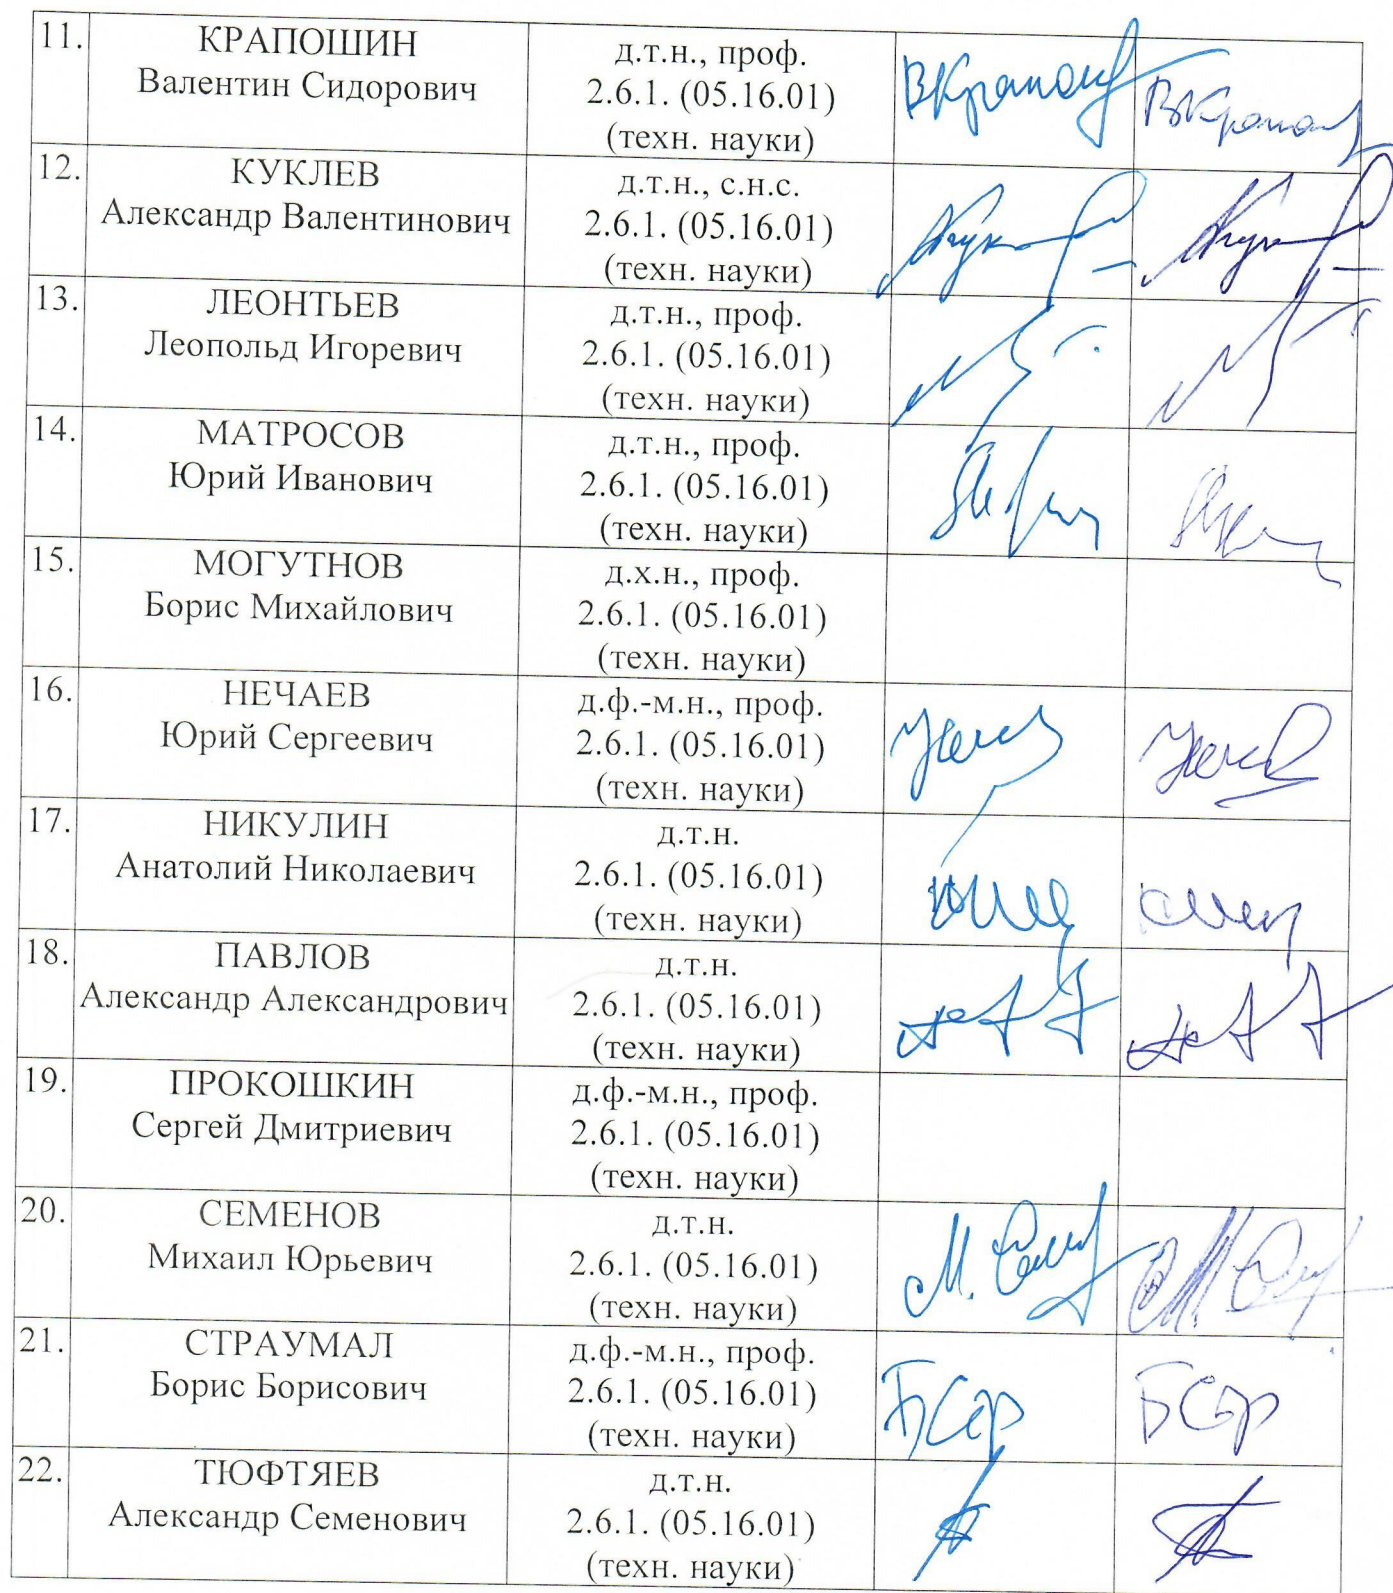 11.
КРАПОШИН
Валентин Сидорович
д.т.н., проф.
2.6.1. (05.16.01)
(техн. науки)
12.
КУКЛЕВ
Александр Валентинович
д.т.н., с.н.с.
2.6.1. (05.16.01)
(техн. науки)
13.
ЛЕОНТЬЕВ
Леопольд Игоревич
д.т.н., проф.
2.6.1. (05.16.01)
(техн. науки)
14.
МАТРОСОВ
Юрий Иванович
д.т.н., проф.
2.6.1. (05.16.01)
(техн. науки)
15.
МОГУТНОВ
Борис Михайлович
д.х.н., проф.
2.6.1. (05.16.01)
(техн. науки)
16.
НЕЧАЕВ
Юрий Сергеевич
д.ф.-м.н., проф.
2.6.1. (05.16.01)
(техн. науки)
17.
НИКУЛИН
Анатолий Николаевич
д.т.н.
2.6.1. (05.16.01)
(техн. науки)
18.
ПАВЛОВ
Александр Александрович
д.т.н.
2.6.1. (05.16.01)
(техн. науки)
19.
ПРОКОШКИН
Сергей Дмитриевич
д.ф.-м.н., проф.
2.6.1. (05.16.01)
(техн. науки)
20.
СЕМЕНОВ
Михаил Юрьевич
д.т.н.
2.6.1. (05.16.01)
(техн. науки)
21.
СТРАУМАЛ
Борис Борисович
д.ф.-м.н., проф.
2.6.1. (05.16.01)
(техн. науки)
22.
ТЮФТЯЕВ
Александр Семенович
д.т.н.
2.6.1. (05.16.01)
(техн. науки)